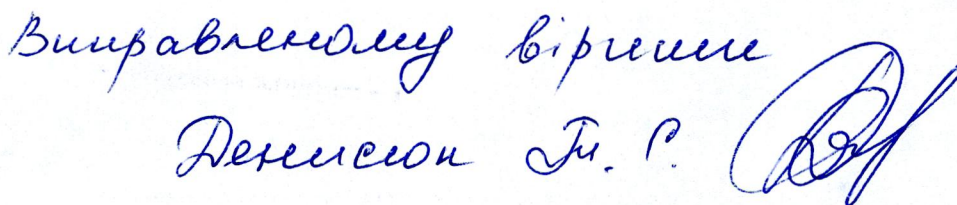 Виправленому вірити
Денисюк Т. С.